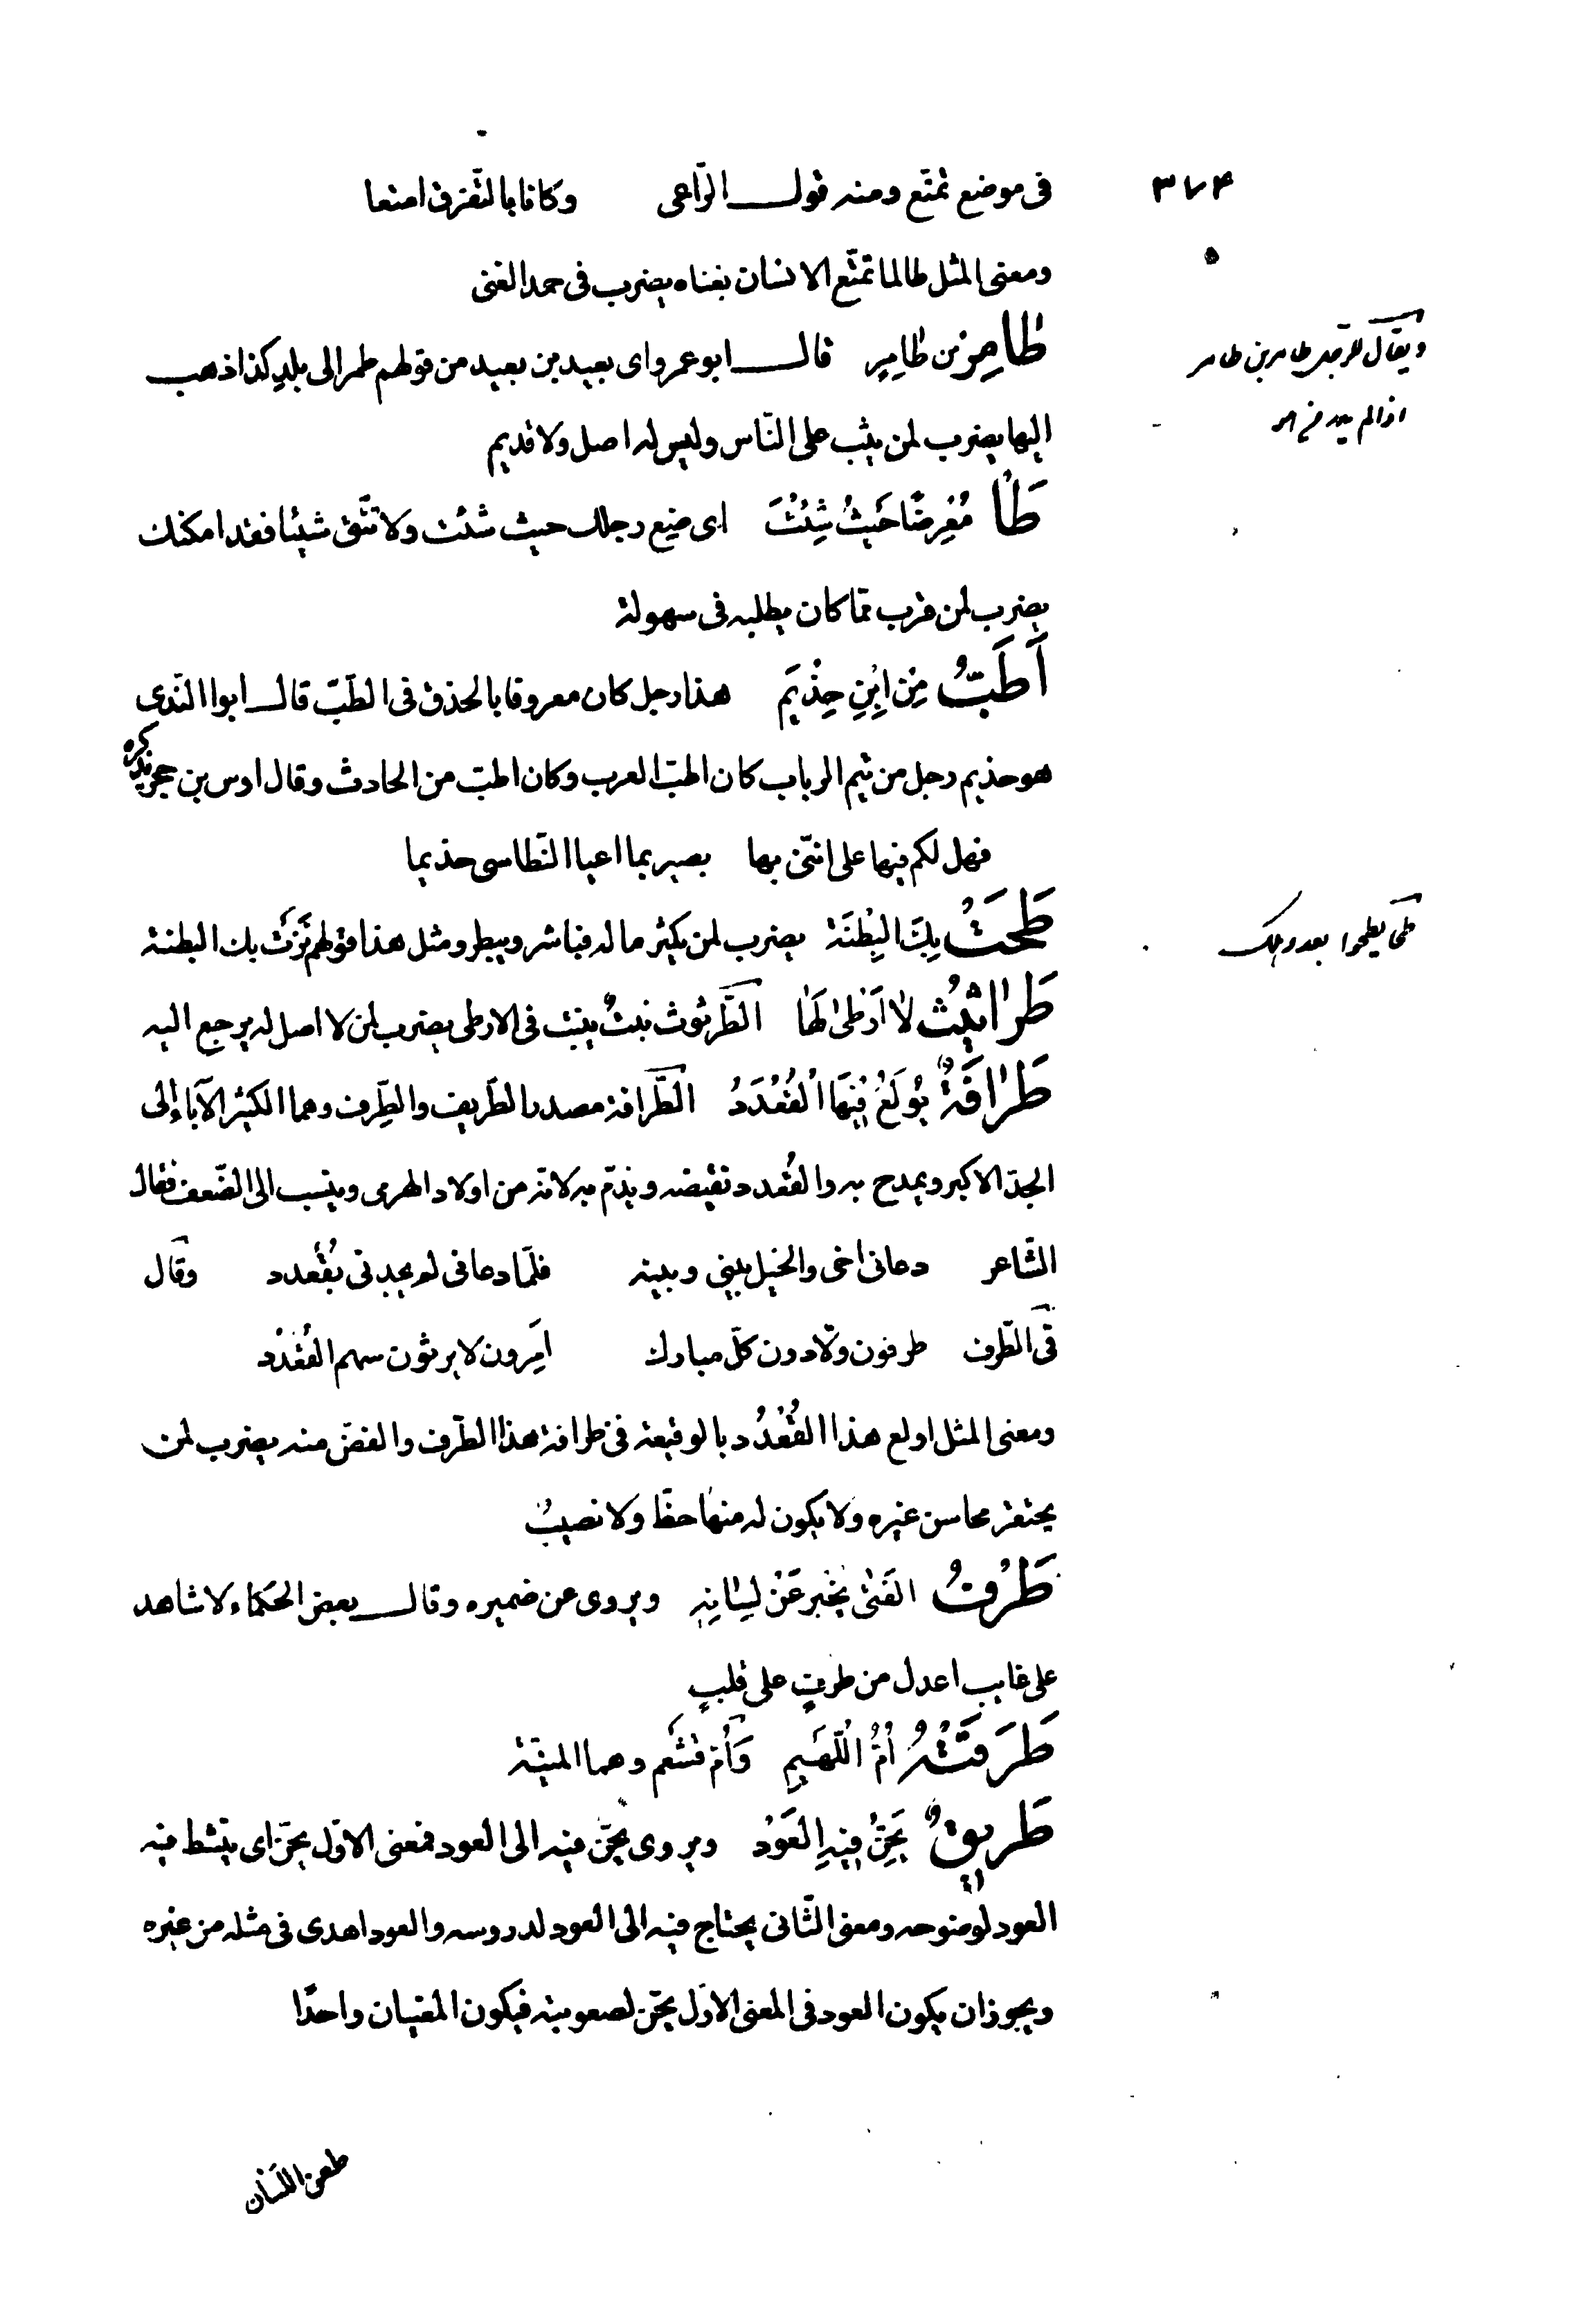 ٣٧٤
فى موضع تمتّع ومنه قول الرّاعى وكانا بالتّفرق امتعا
ومعنى المثل طالما تمتّع الانسان بغناه يضرب فى حمد الغنى
طَامِرُ بن طَامِرٍ قال ابو عمرو اى بعيد بن بعيد من قولهم طمر الى بلد كذا اذهب
ويقال للرجل طامر بن طامر
اذا لم يدر من هو
اليها يضرب لمن يثب على النّاس وليس له اصل ولا قديم
طَأْ مُعْرِضًا حَيْثُ شِئْتَ اى ضع رجلك حيث شئت ولا تتّق شيئا فقد امكنك
يضرب لمن قرب ممّا كان يطلبه فى سهولة
أَطَبُّ مِن ابْنِ حِذْيَم هذا رجل كان معروفا بالحذق فى الطّبّ قال ابو االنّدى
هو حذيم رجل من تيم الرباب كان اطبّ العرب وكان اطبّ من الحارث وقال اوس بن حجر يذكره
فهل لكم فيها علىّ فانّنى بصير بما اعيا النّطاسى حذيما
طَحَتْ بِكَ البِطْنَة يضرب لمن يكثر ماله فياشر ويبطر ومثل هذا قولهم نَزَتْ بك البطنة
طَرَاثِيثُ لَا أَرْطَى لَهَا الطّرثوث نبتٌ ينبت فى الارطى يضرب لمن لا اصل له يرجع اليه
طَرَافَةٌ يُولَعُ فِيهَا الْقُعْدُدُ الطّرافة مصدر الطّريف والطّرِف وهما الكثير الآباء إلى
الجدّ الاكبر ويمدح به والقُعدد نقيضه ويذمّ به لانّه من اولاد الهرمى وينسب الى الضّعف فقال
الشّاعر دعانى اخى والخيل بينى وبينه فلمّا دعانى لم يجدنى بقُعدد وقال
فى الطّرف طرفون ولّادون كلّ مبارك امِرون لا يرثون سهم القُعْدُد
ومعنى المثل اولع هذا القُعْدُد بالوقيعة فى طرافة هذا الطّرف والغضّ منه يضرب لمن
يحتقر محاسن غيره ولا يكون له منها حظّ ولا نصيبٌ
طَرْفُ الفَتَى يُخْبِر عَنْ لِسَانِهِ ويروى عن ضميره وقال بعض الحكماء لا شاهد
على غايب اعدل من طرفٍ على قلبٍ
طَرَقَتْهُ أُمُّ اللُّهَيمِ وَأُمّ قشْعم وهما المنيّة
طَرِيقٌ يَحِنُّ فِيهِ الْعَوْدُ ويروى يحنّ فيه الى العود فمعنى الاوّل يحنّ اى ينشط فيه
العود لوضوحه ومعنى الثّانى يحتاج فيه الى العود لدروسه والعود اهدى فى مثله من غيره
ويجوز ان يكون العود فى المعنى الاوّل يحنّ لصعوبته فيكون المعنيان واحدًا
طعن اللّسان